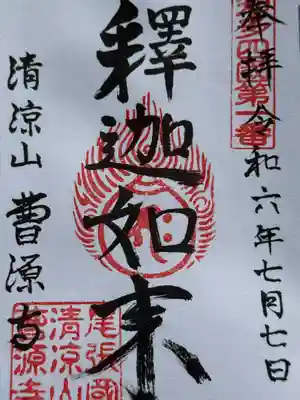 奉拝 令和六年七月七日
釋迦如来
清涼山 曹源寺
尾張國
清涼山
曹源寺